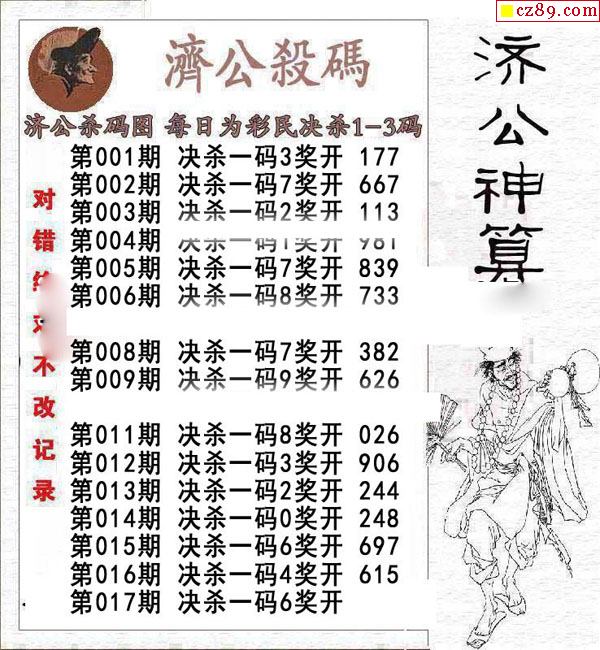 cz89.com
濟公殺碼
济公杀码图 每日为彩民决杀1-3码
第001期 决杀一码3奖开 177
第002期 决杀一码7奖开 667
第003期 决杀一码2奖开 113
第004期 决杀一码1奖开 981
第005期 决杀一码7奖开 839
第006期 决杀一码8奖开 733
第008期 决杀一码7奖开 382
第009期 决杀一码9奖开 626
第011期 决杀一码8奖开 026
第012期 决杀一码3奖开 906
第013期 决杀一码2奖开 244
第014期 决杀一码0奖开 248
第015期 决杀一码6奖开 697
第016期 决杀一码4奖开 615
第017期 决杀一码6奖开
对错
不改记录
济公神算